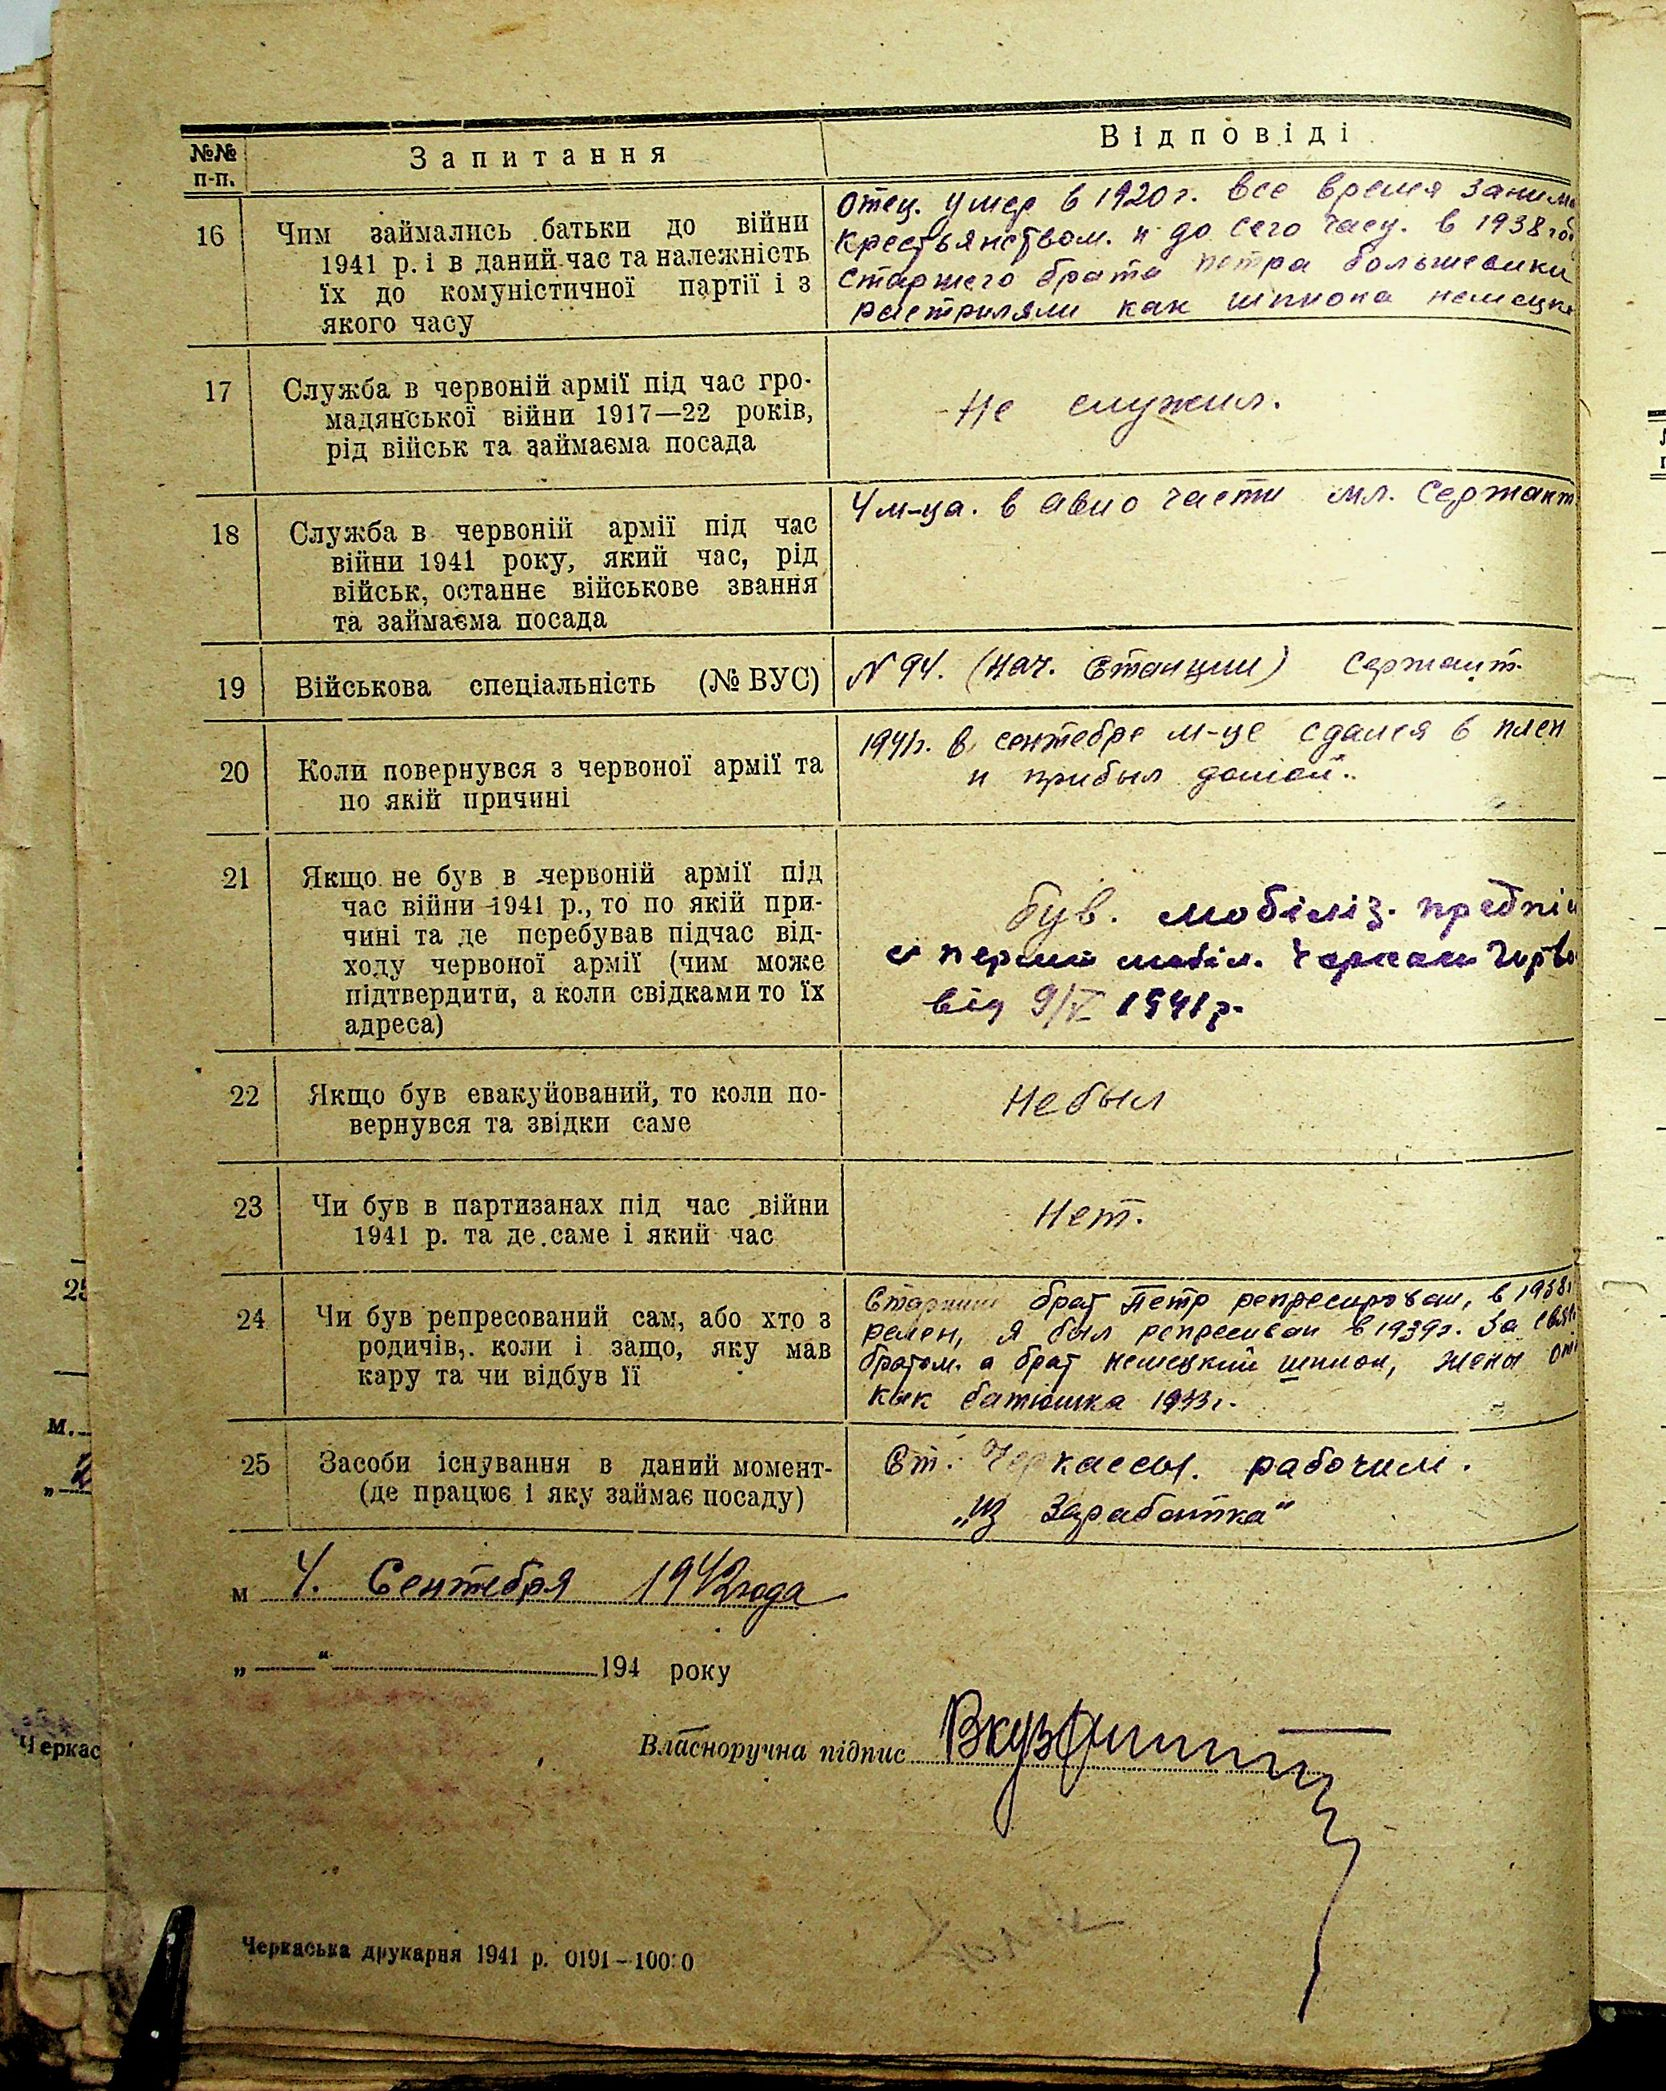 №№ п-п.
Запитання
Відповіді
16
Чим займались батьки до війни
1941 р. і в даний час та належність
їх до комуністичної партії і з
якого часу
Отец. умер в 1920 г. все время
крестьянством. и до сего часу. в 1938
старшего брата Петра большевики
растриляли как шпиона
17
Служба в червоній армії під час гро-
мадянської війни 1917—22 років,
рід військ та займаєма посада
Не служил.
18
Служба в червоній армії під час
війни 1941 року, який час, рід
військ, останнє військове звання
та займаєма посада
4 м-ца. в авио части мл. Сержант
19
Військова спеціальність (№ ВУС)
N 94. (нач. Станции) Сержант.
20
Коли повернувся з червоної армії та
по якій причині
1941г. в сентебре м-це сдался в плен
и прибыл домой.
21
Якщо не був в червоній армії під
час війни 1941 р., то по якій при-
чині та де перебував підчас від-
ходу червоної армії (чим може
підтвердити, а коли свідками то їх
адреса)
був. мобіліз.
від 1941 р.
22
Якщо був евакуйований, то коли по-
вернувся та звідки саме
Не был
23
Чи був в партизанах під час війни
1941 р. та де саме і який час
Нет.
24
Чи був репресований сам, або хто з
родичів, коли і защо, яку мав
кару та чи відбув її
брат Петр в 1938
я был в 1939г. За
братом. а брат немецкий шпион, жены
как батюшка
25
Засоби існування в даний момент-
(де працює і яку займає посаду)
Ст. Черкассы. рабочим.
„из Заработка“
м 4. Сентебря 1942 года
„ “ 194 року
Власноручна підпис
Черкаська друкарня 1941 р. 0191–10000
25
м.
Черкас